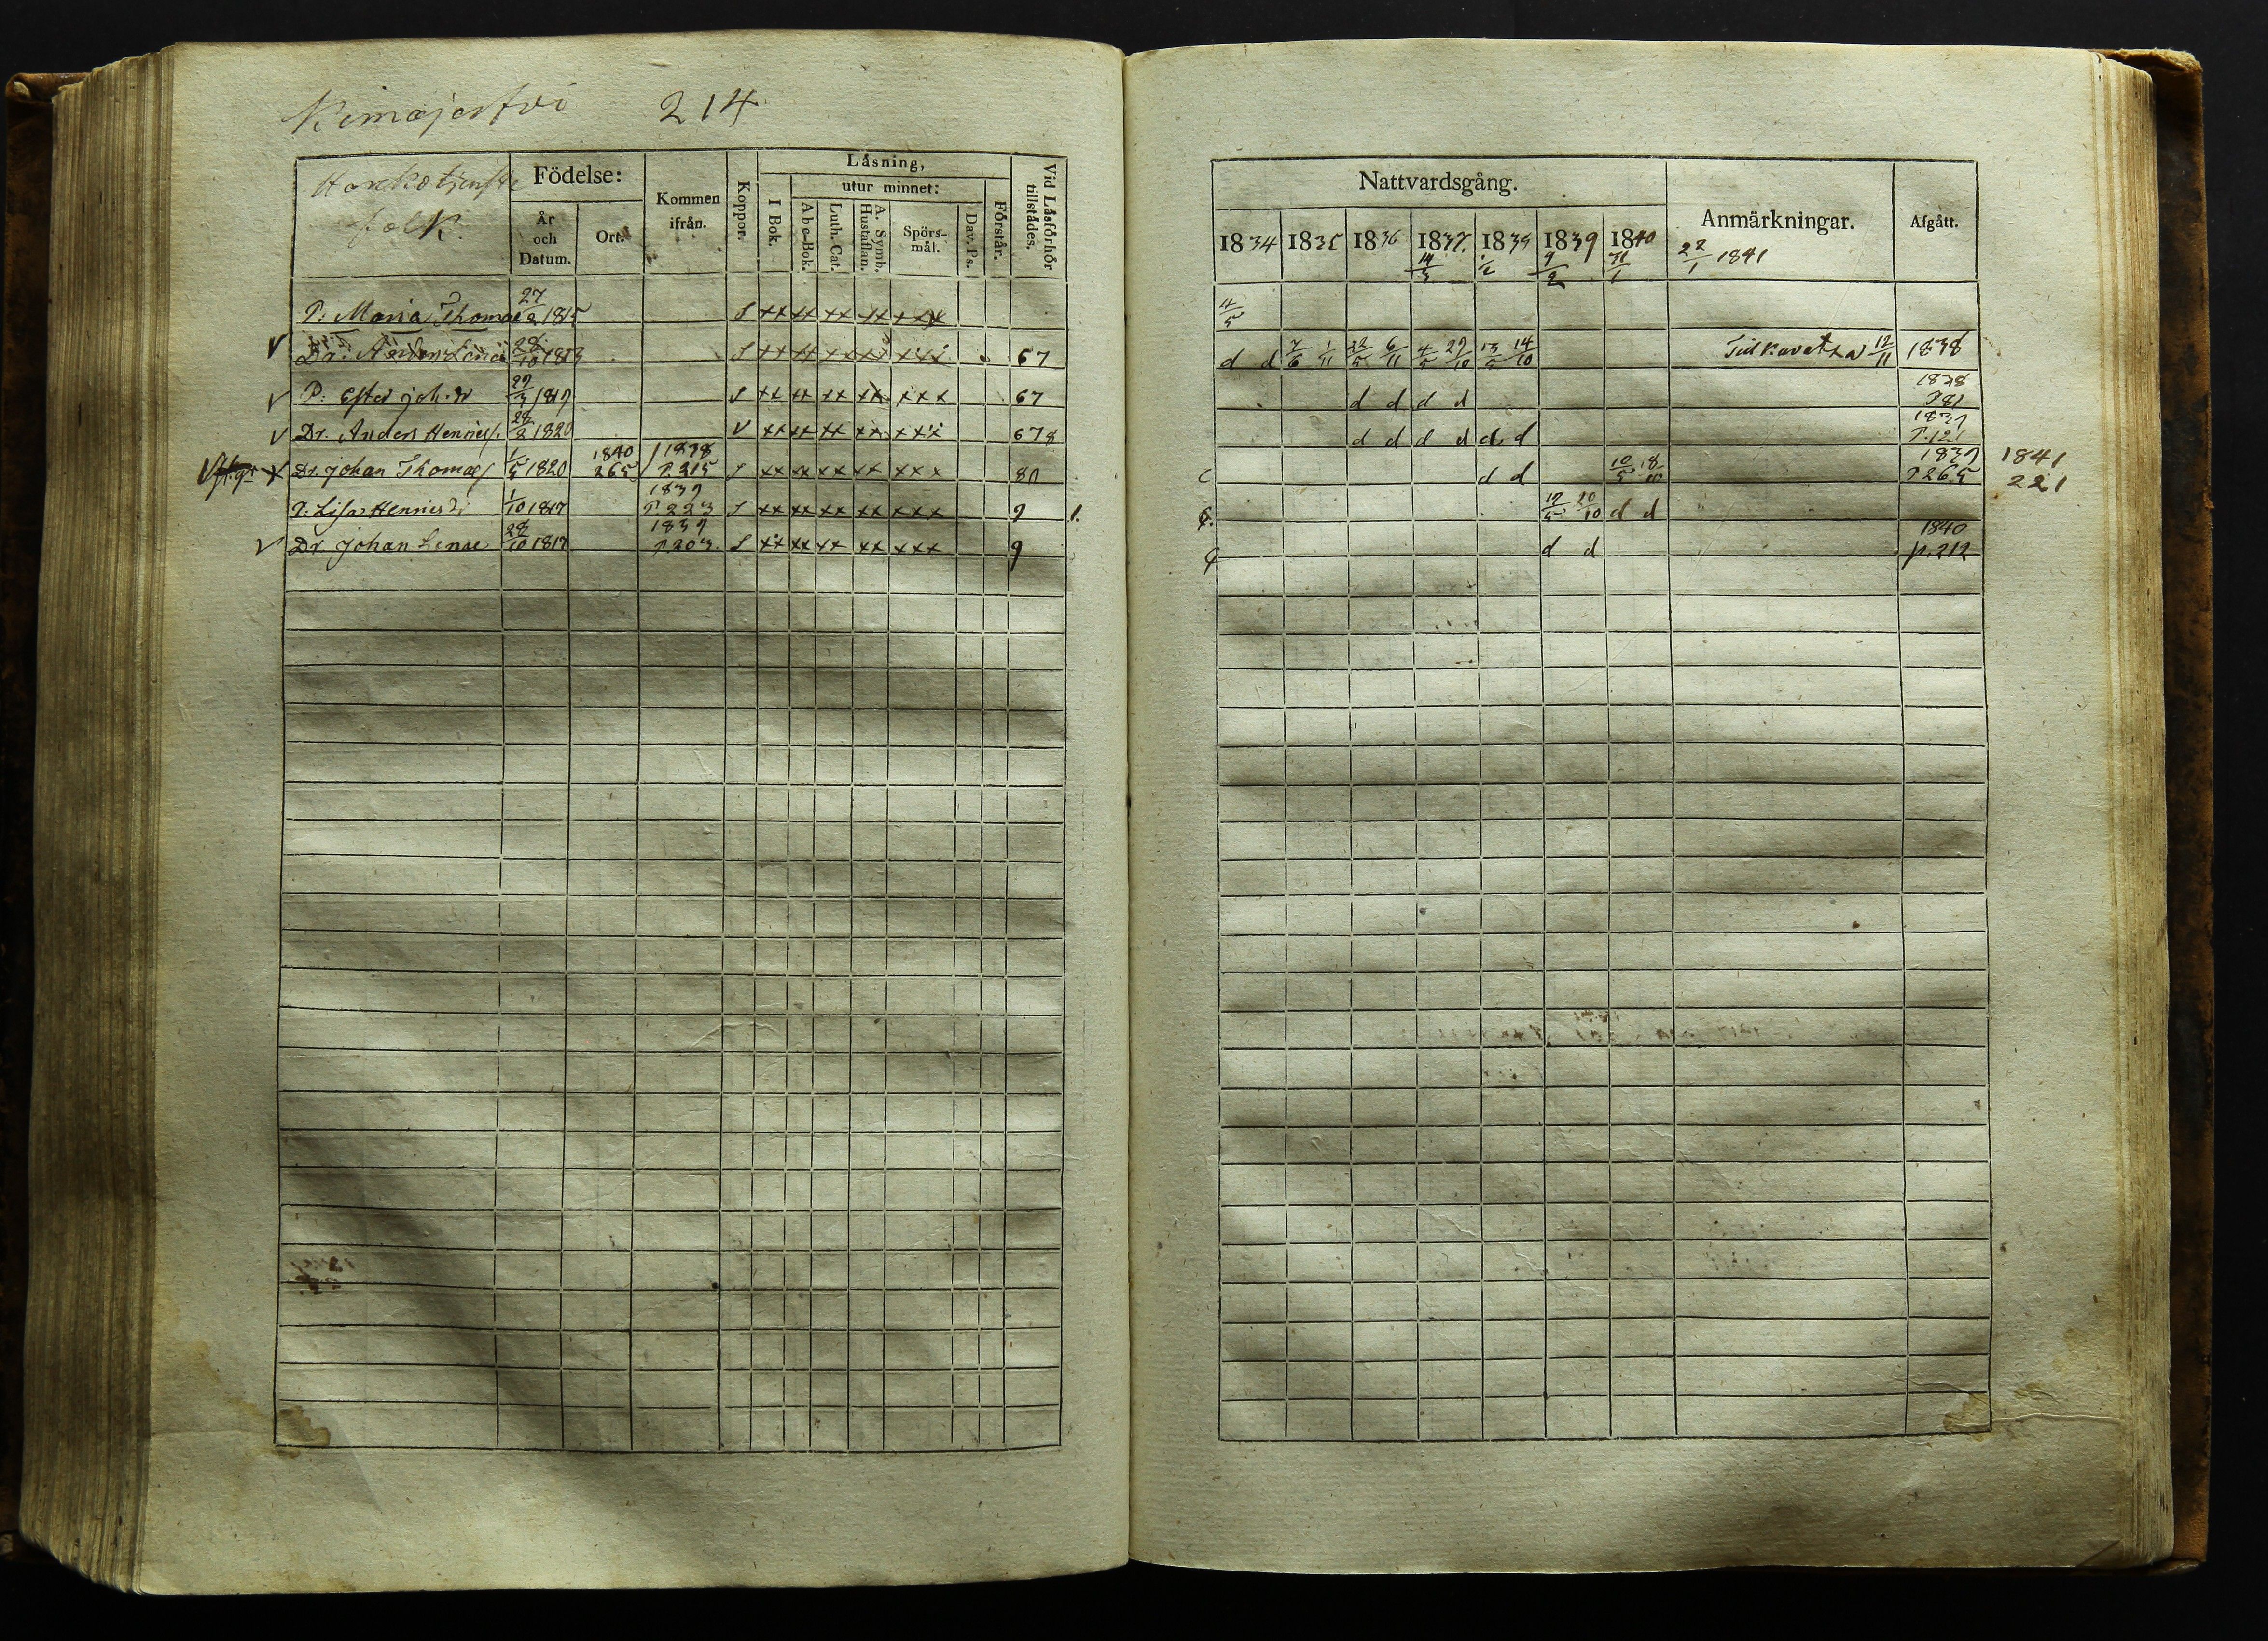 Kimajerfvi 214
Födelse: Kommen ifrån. Koppor. Läsning, Vid Läsförhör tillstädes.
folk. År och Datum. Ort. I Bok. utur minnet: Förstår.
Abc-Bok. Luth. Cat. A. Symb. Hustaflan. Spörsmål. Dav. Ps.
P: Maria Thomæ 27/2 1815 S xx xx xx xx xxx
Dr: Anders 28/10 1813 S xx xx xx xx xxx 67
P: Ester Joh:dr 29/3 1819 S xx xx xx xx xxx 67
Dr. Anders Henriess. 28/2 1820 V xx xx xx xx xxx 678
Dr. Johan Thomæs 1/5 1820 1840 265 1838 P. 215 S xx xx xx xx xxx 80
P: Lisa Henriesdr 1/10 1817 1839 P 223 S xx xx xx xx xxx 9 1.
Dr Johan 28/10 1817 1839 P 203. S xx xx xx xx xxx 9
Nattvardsgång. Anmärkningar. Afgått.
1834 1835 1836 1837. 14/3 1838 1/2 1839 9/2 1840 31/1 22/1 1841
4/5
d d 7/6 1/11 22/5 6/11 4/5 29/10 13/5 14/10 Till 12/11 1838
d d d d 1838 P 81
d d d d d d 1839 P. 121
d d 10/5 18/10 1839 P 265 1841 221
19/5 20/10 d d
d d 1840 p. 212